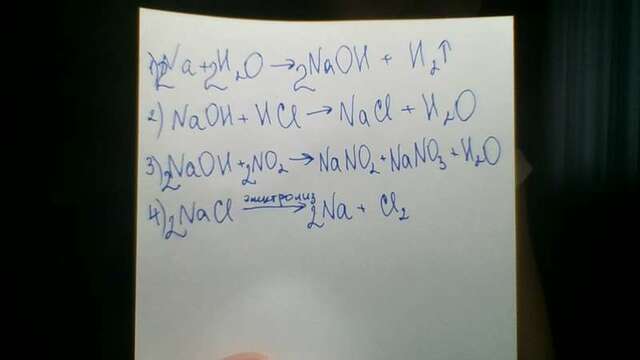 1) 2Na + 2H₂O → 2NaOH + H₂↑
2) NaOH + HCl → NaCl + H₂O
3) 2NaOH + 2NO₂ → NaNO₂ + NaNO₃ + H₂O
4) 2NaCl электролиз → 2Na + Cl₂